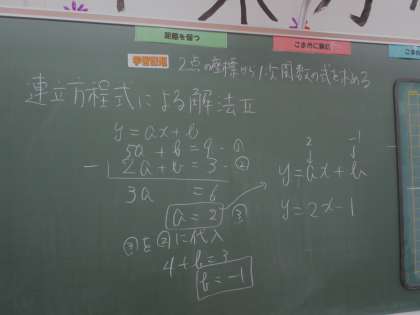 距離を保つ
学習課題
2点の座標から1次関数の式を求める
連立方程式による解法Ⅱ
y=ax+b
5a+b=9-①
-2a+b=3-②
3a =6
a=2 ③
③を②に代入
4+b=3
b=-1
2 -1
y=ax+b
y=2x-1